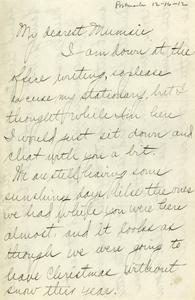 Postmark 12-16-12
My dearest Mumsie
I am down at the
office writing, so please
excuse my stationary, but I
thought while I'm here
I would just sit down and
chat with you a bit.
We are still having some
sunshiny days, like the ones
we had while you were here
almost, and it looks as
though we were going to
have Christmas without
snow this year.